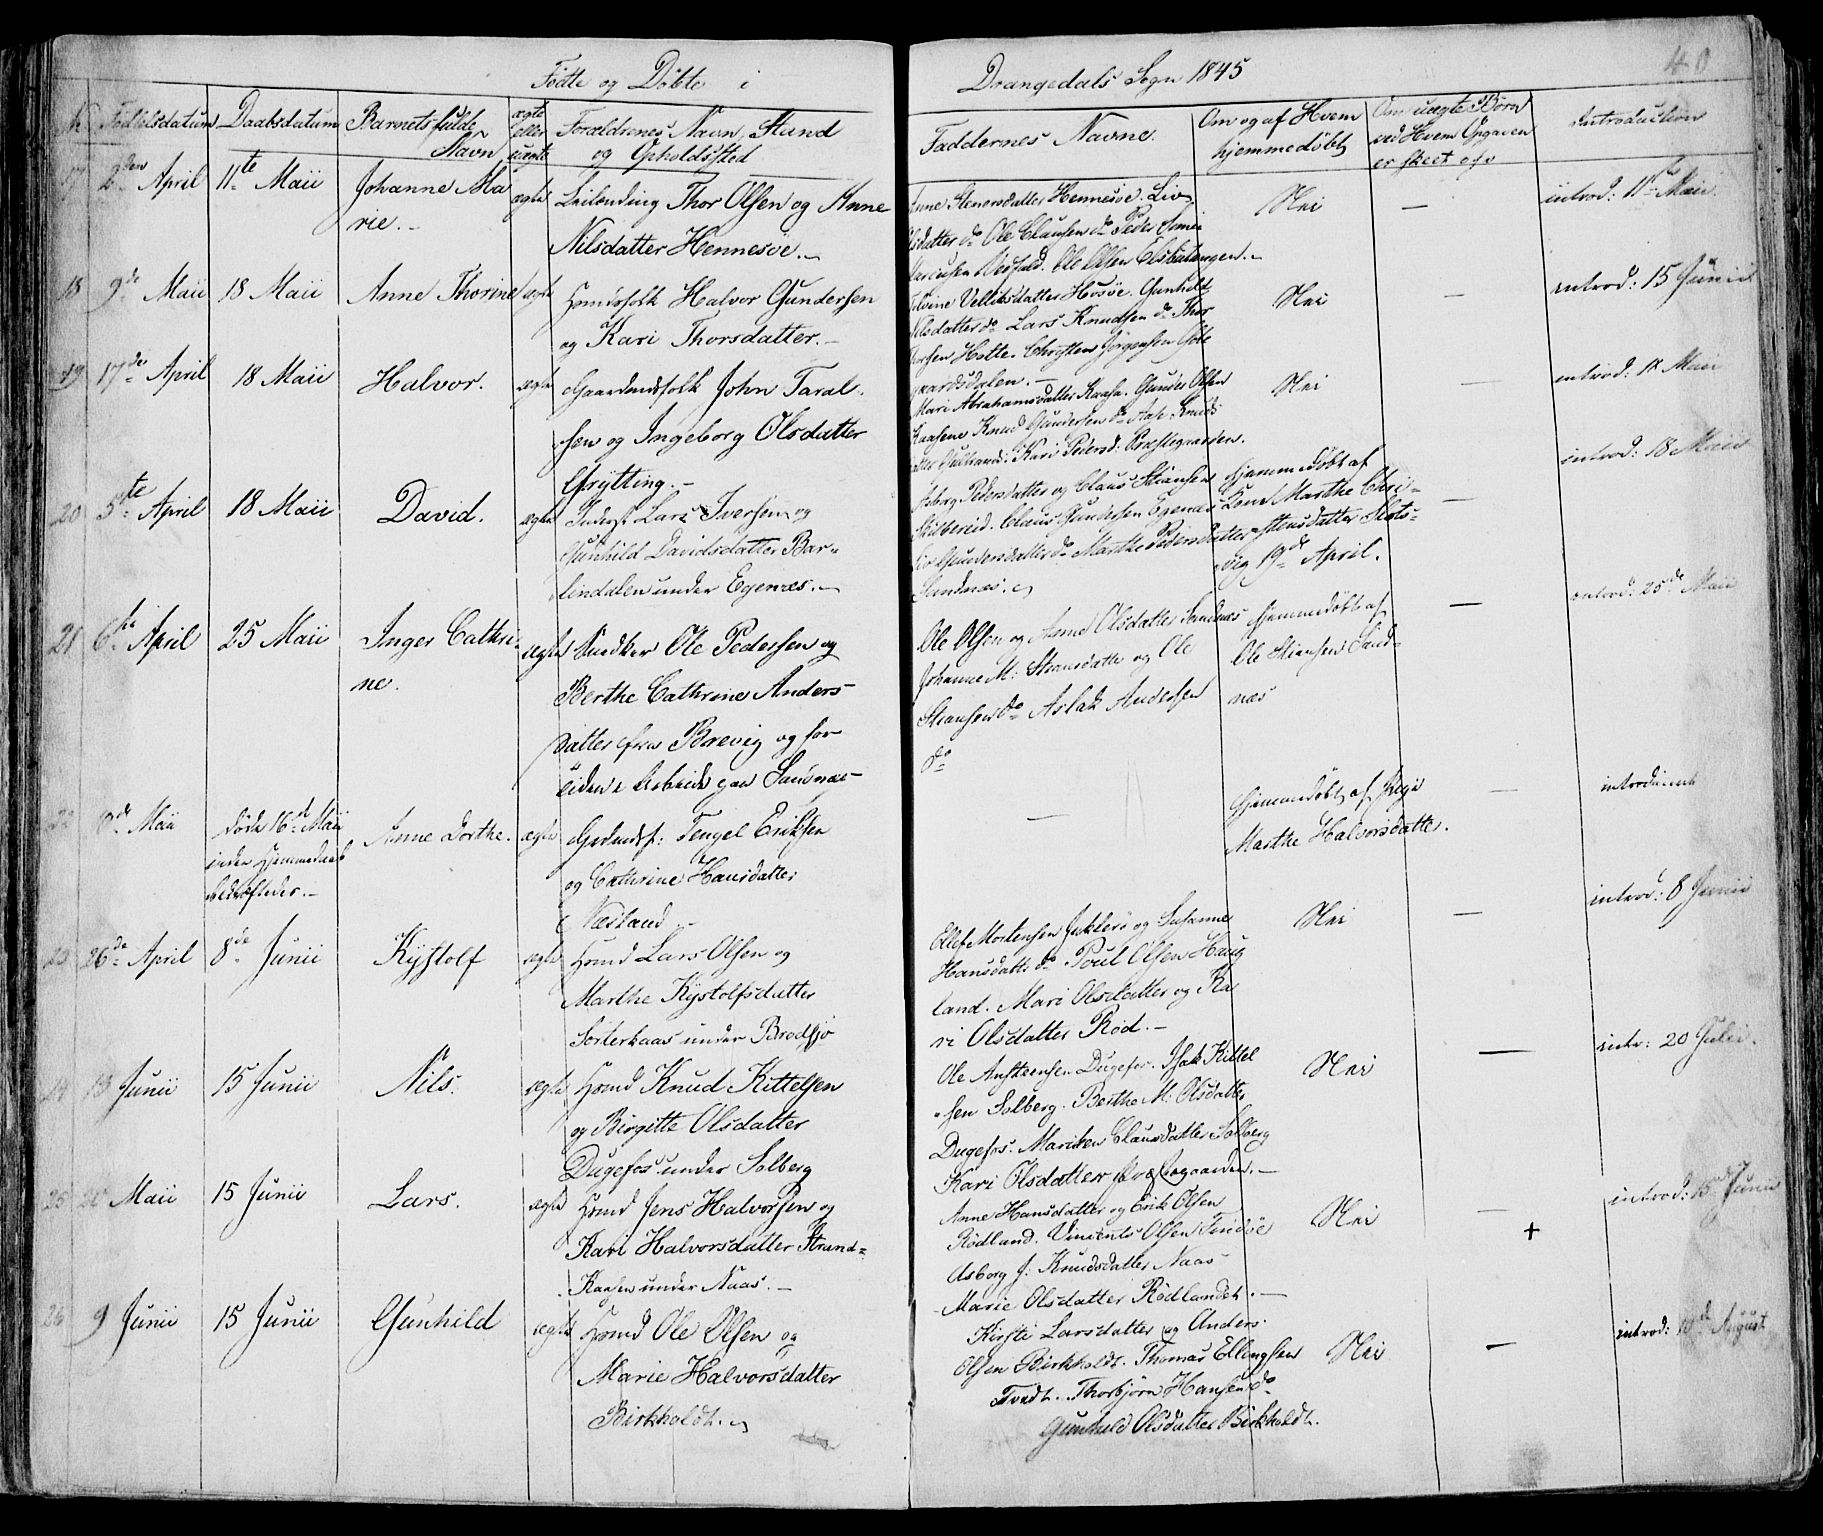 Fødte og Døbte i Drangedals Sogn 1845
40
Fødselsdatum Daabsdatum Barnets fulde Navn ægte eller uægte Forældrenes Navn, Stand og Opholdssted
Faddernes Navne. Om og af Hvem hjemmedøbt Om uægte Børn ved Hvem Opgaven er skeet osv Introduction
17 2den April 11te Maii Johanne Ma
rie.
ægte Leilending Thor Olsen og Anne
Nilsdatter Hennesøe.
Anne Stenersdatter Hennesøe. Liv
do Ole Clausen do Peder
Ole Olsen
Nei — introd: 11te Maii
18 9de Maii 18 Maii Anne Thorine ægte Huusfolk Halvor Gundersen
og Kari Thorsdatter.
Hosøe. Gunhild
do Lars Knudsen do Thor
Christen Jørgensen
Nei — introd: 15 Junii
19 17de April 18 Maii Halvor. ægte Gaardmdsfolk John Taral-
sen og Ingeborg Olsdatter
Grytting.
Mari Abrahamsdatter Kaasa. Gunder Olsen
Kaasene Knud Gundersen do
Kari Pedersd: Præstegaarden.
Nei — introd: 18 Maii
20 5te April 18 Maii David. ægte Inderst Lars Iversen og
Gunhild Davidsdatter Bar-
lindalen under Egenæs.
Pedersdatter og Claus Stiansen
Claus Gundersen Egenæs
Gundersdatter do Marthe Pedersdatter
Sandnæs.
Hjemmedøbt af
Kone Marthe Chri-
stensdatter Slots-
vig 19de April.
— introd: 18 Maii
21 6te April 25 Maii Inger Cathri-
ne.
ægte Snedker Ole Pedersen og
Berthe Cathrine Anders-
datter fra Brevig og for
tiden i Arbeide paa Sandnæs
Ole Olsen og Anne Olsdatter Sandnæs
Johanne M: Stiansdatter og Ole
Stiansen do Aslak Andersen
do
Hjemmedøbt af
Ole Stiansen Sand-
næs
— introd: 25de Maii
22 8de Maii døde 16de Maii
inden Hjemmedaab
bekræftedes.
Anne Dorthe. ægte Grdmdsf: Tengel Eriksen
og Cathrine Hansdatter
Næsland
—
Hjemmedøbt af Pige
Marthe Halvorsdatter.
— introduceret
23 26de April 8de Junii Kystolf ægte Hsmd Lars Olsen og
Marthe Kystolfsdatter
Sorterkaas under Brødsjø
Ellef Mortensen Jukkerø og Susanne
Hansdatter do Poul Olsen Haug
land. Mari Olsdatter og Ka
ri Olsdatter Rød.
Nei — introd: 8 Junii
24 13 Junii 15 Junii Nils. ægte Hsmd Knud Kittelsen
og Birgitte Olsdatter
Dugefos under Solberg
Ole Anstensen Dugefos. Isak Kittel
sen Solberg. Berthe M: Olsdatter
Dugefos. Mariken Clausdatter Solberg
Kari Olsdatter Præstegaarden.
Nei — intr: 20 Julii.
25 Maii 15 Junii Lars. ægte Hsmd Jens Halvorsen og
Kari Halvorsdatter Strand-
Kaasen under Naas.
Anne Hansdatter og Erik Olsen
Rødland. Vincents Olsen
Asborg J: Knudsdatter Naas
Marie Olsdatter Rødlandet.
Nei — + introd: 15de Junii
26 9 Junii 15 Junii Gunhild ægte Hsmd Ole Olsen og
Marie Halvorsdatter
Birkholdt.
Kirsti Larsdatter og Anders
Olsen Birkholdt. Thomas Ellingsen
Tvedt. Thorbjørn Hansen do
Gunhild Olsdatter Birkholdt.
Nei — introd: 10de August